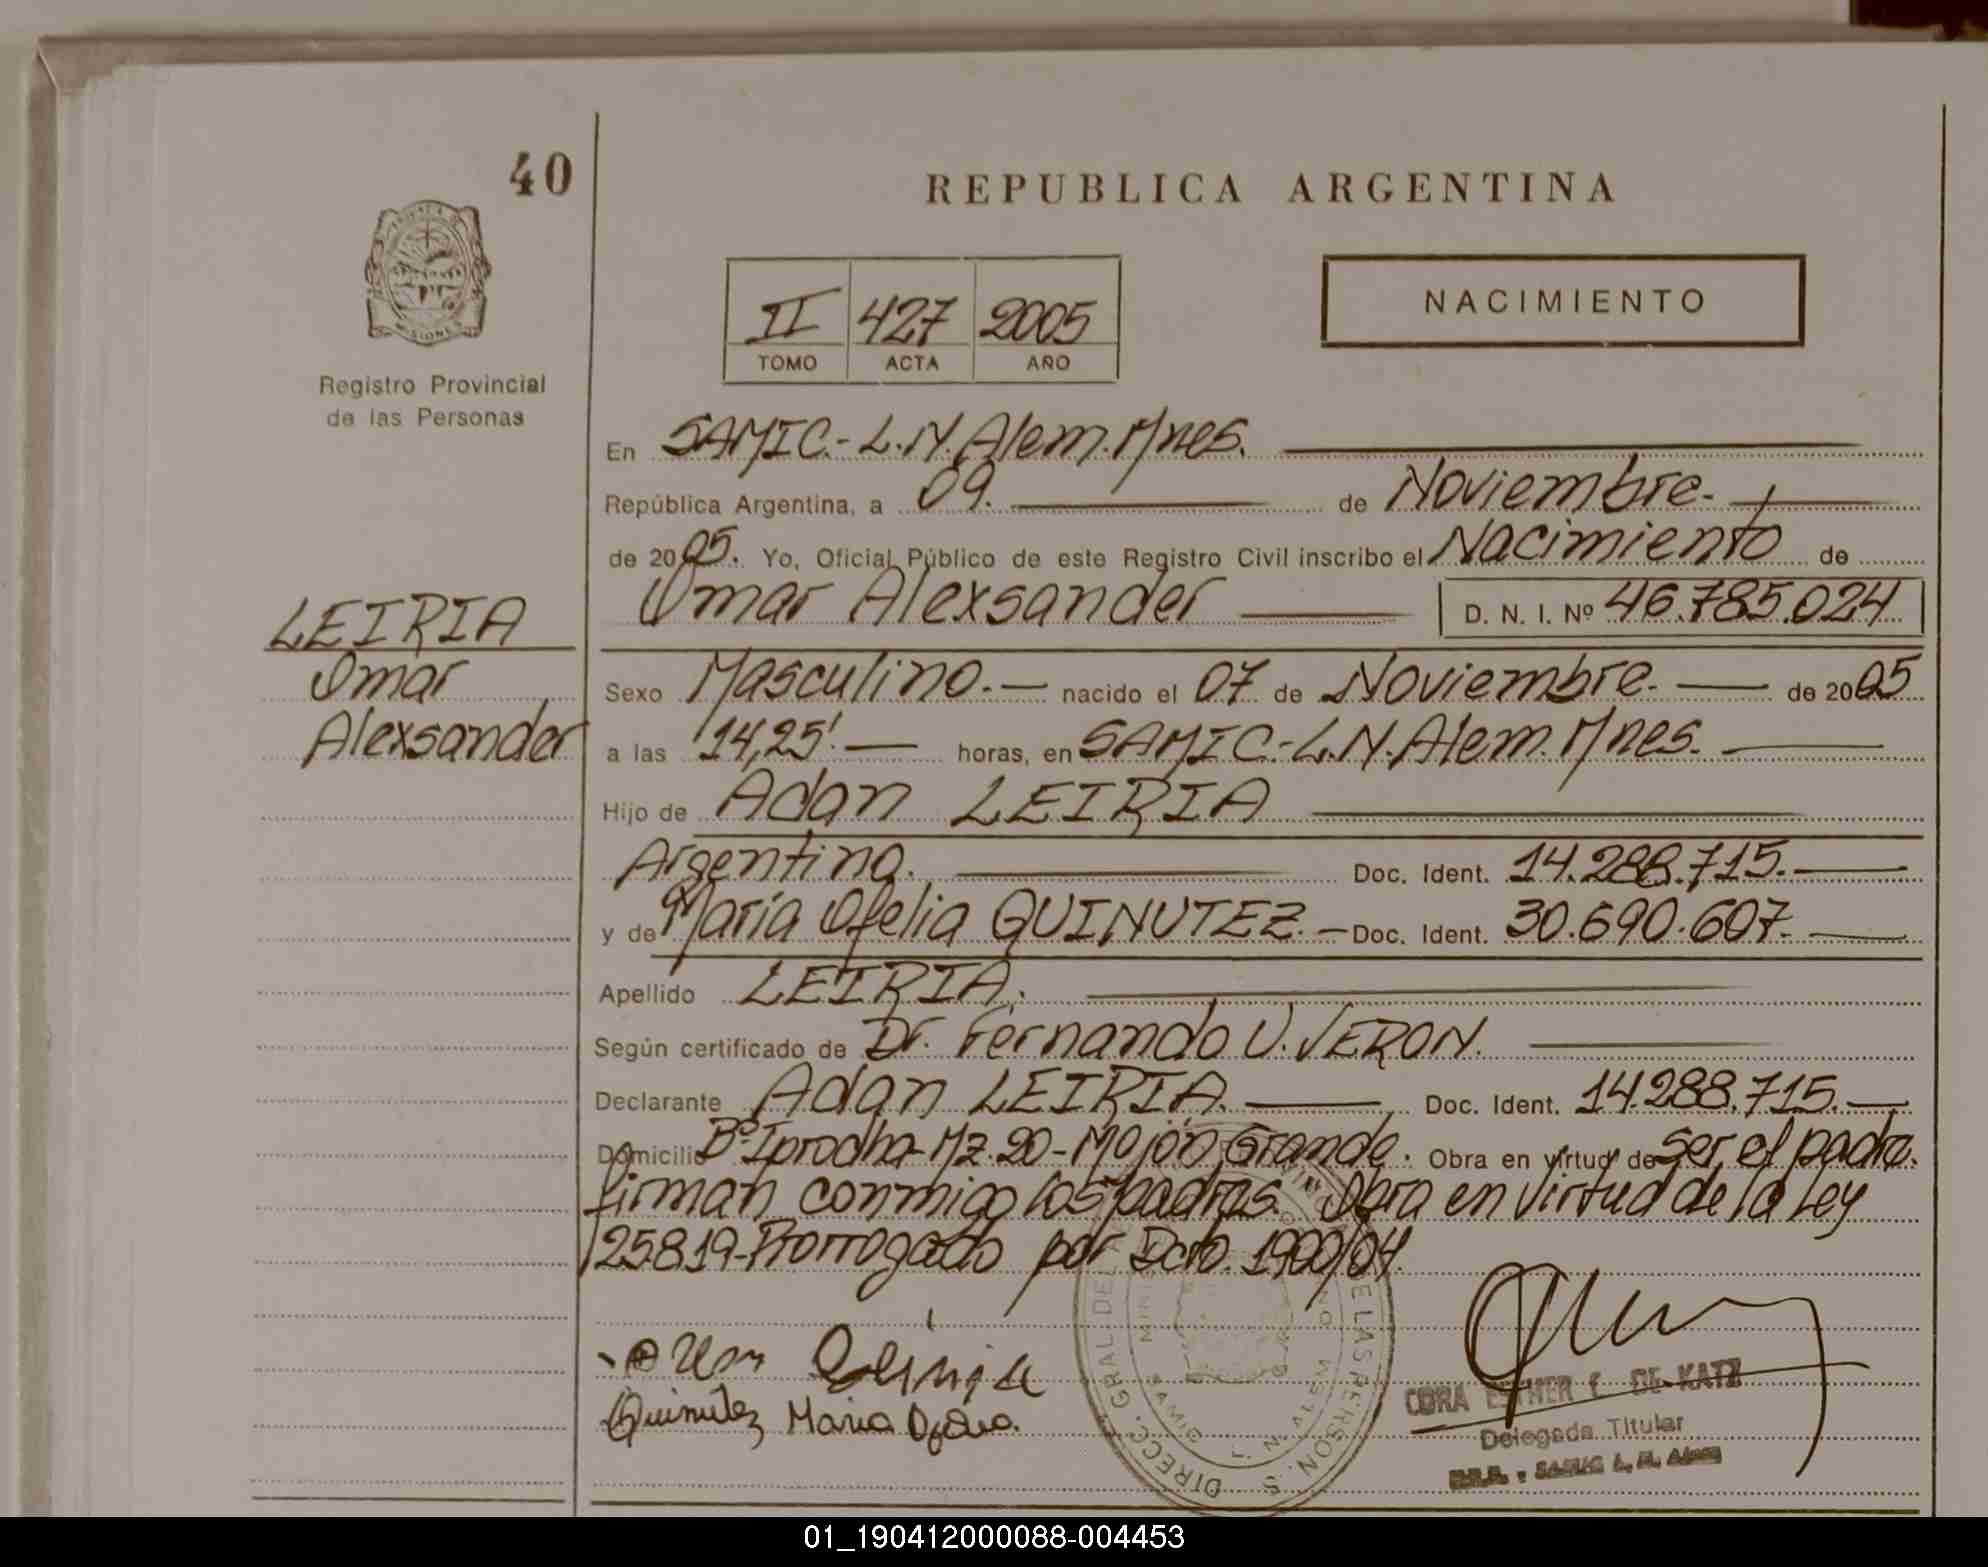 40
REPUBLICA ARGENTINA
MISIONES
Registro Provincial
de las Personas
II 427 2005
TOMO ACTA AÑO
NACIMIENTO
En SAMIC.- L.N.Alem.Mnes.
República Argentina, a 09. de Noviembre.-
de 2005. Yo, Oficial Público de este Registro Civil inscribo el Nacimiento de
Omar Alexsander D. N. I. Nº 46.785.024
LEIRIA
Omar
Alexsander
Sexo Masculino.- nacido el 07 de Noviembre.- de 2005
a las 14,25'.- horas, en SAMIC.-L.N.Alem.Mnes.
Hijo de Adan LEIRIA
Argentino. Doc. Ident. 14.288.715.-
y de María Ofelia QUINUTEZ.- Doc. Ident. 30.690.607.-
Apellido LEIRIA.
Según certificado de Dr. Fernando U. VERON.
Declarante Adan LEIRIA. Doc. Ident. 14.288.715.-
Domicilio Bº Iprodha-Mz.20-Mojón Grande. Obra en virtud de ser el padre.
firman conmigo los padres. Obra en virtud de la Ley
25819-Prorrogado por Dcto. 1900/04.
Quinutez Maria Ofelia.
DIRECC. GRAL. DE LAS PERSON. S
L. N. ALEM
CORA ESTHER E. DE KATZ
Delegada Titular
SAMIC L. N. Alem
01_190412000088-004453